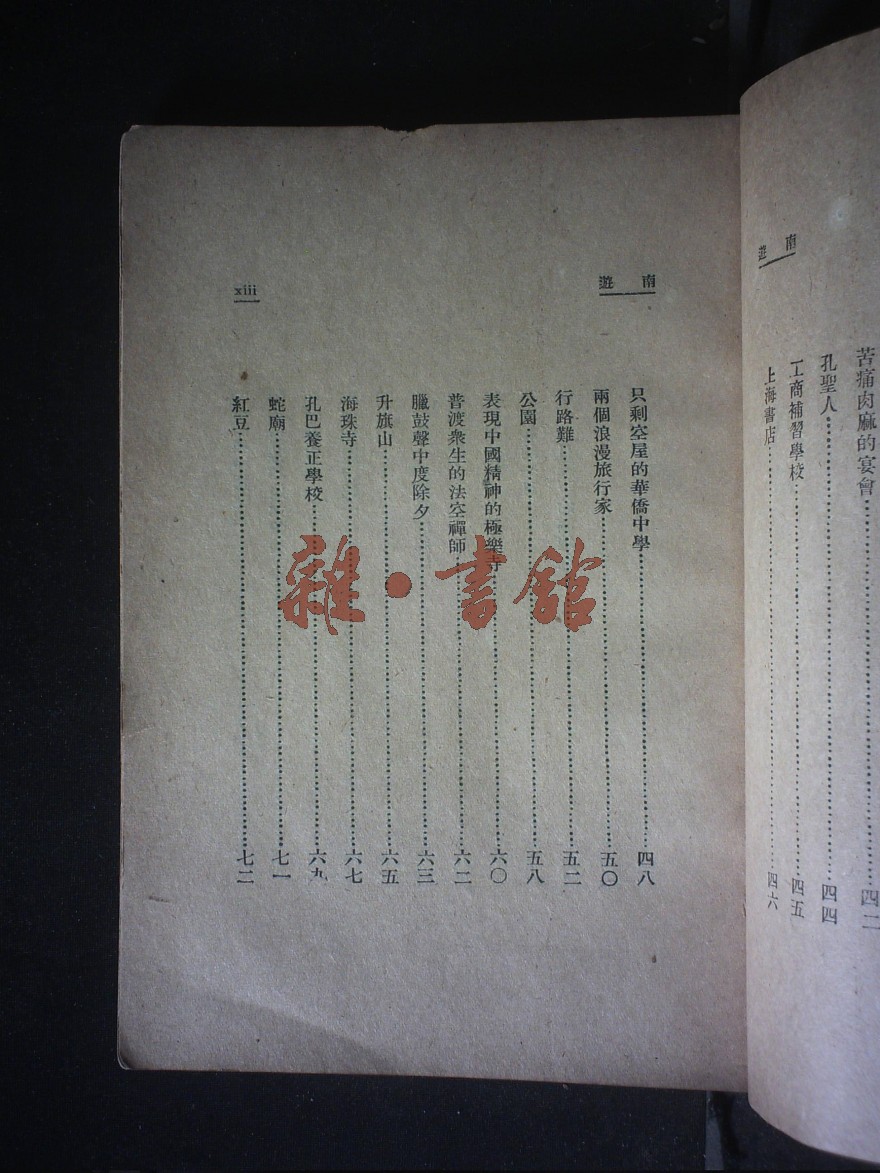 南遊
苦痛肉麻的宴會……四二
孔聖人……四四
工商補習學校……四五
上海書店……四六
南遊
xiii
只剩空屋的華僑中學……四八
兩個浪漫旅行家……五〇
行路難……五二
公園……五八
表現中國精神的極樂寺……六〇
普渡衆生的法空禪師……六二
臘鼓聲中度除夕……六三
升旗山……六五
海珠寺……六七
孔巴養正學校……六九
蛇廟……七一
紅豆……七二
雜·書館